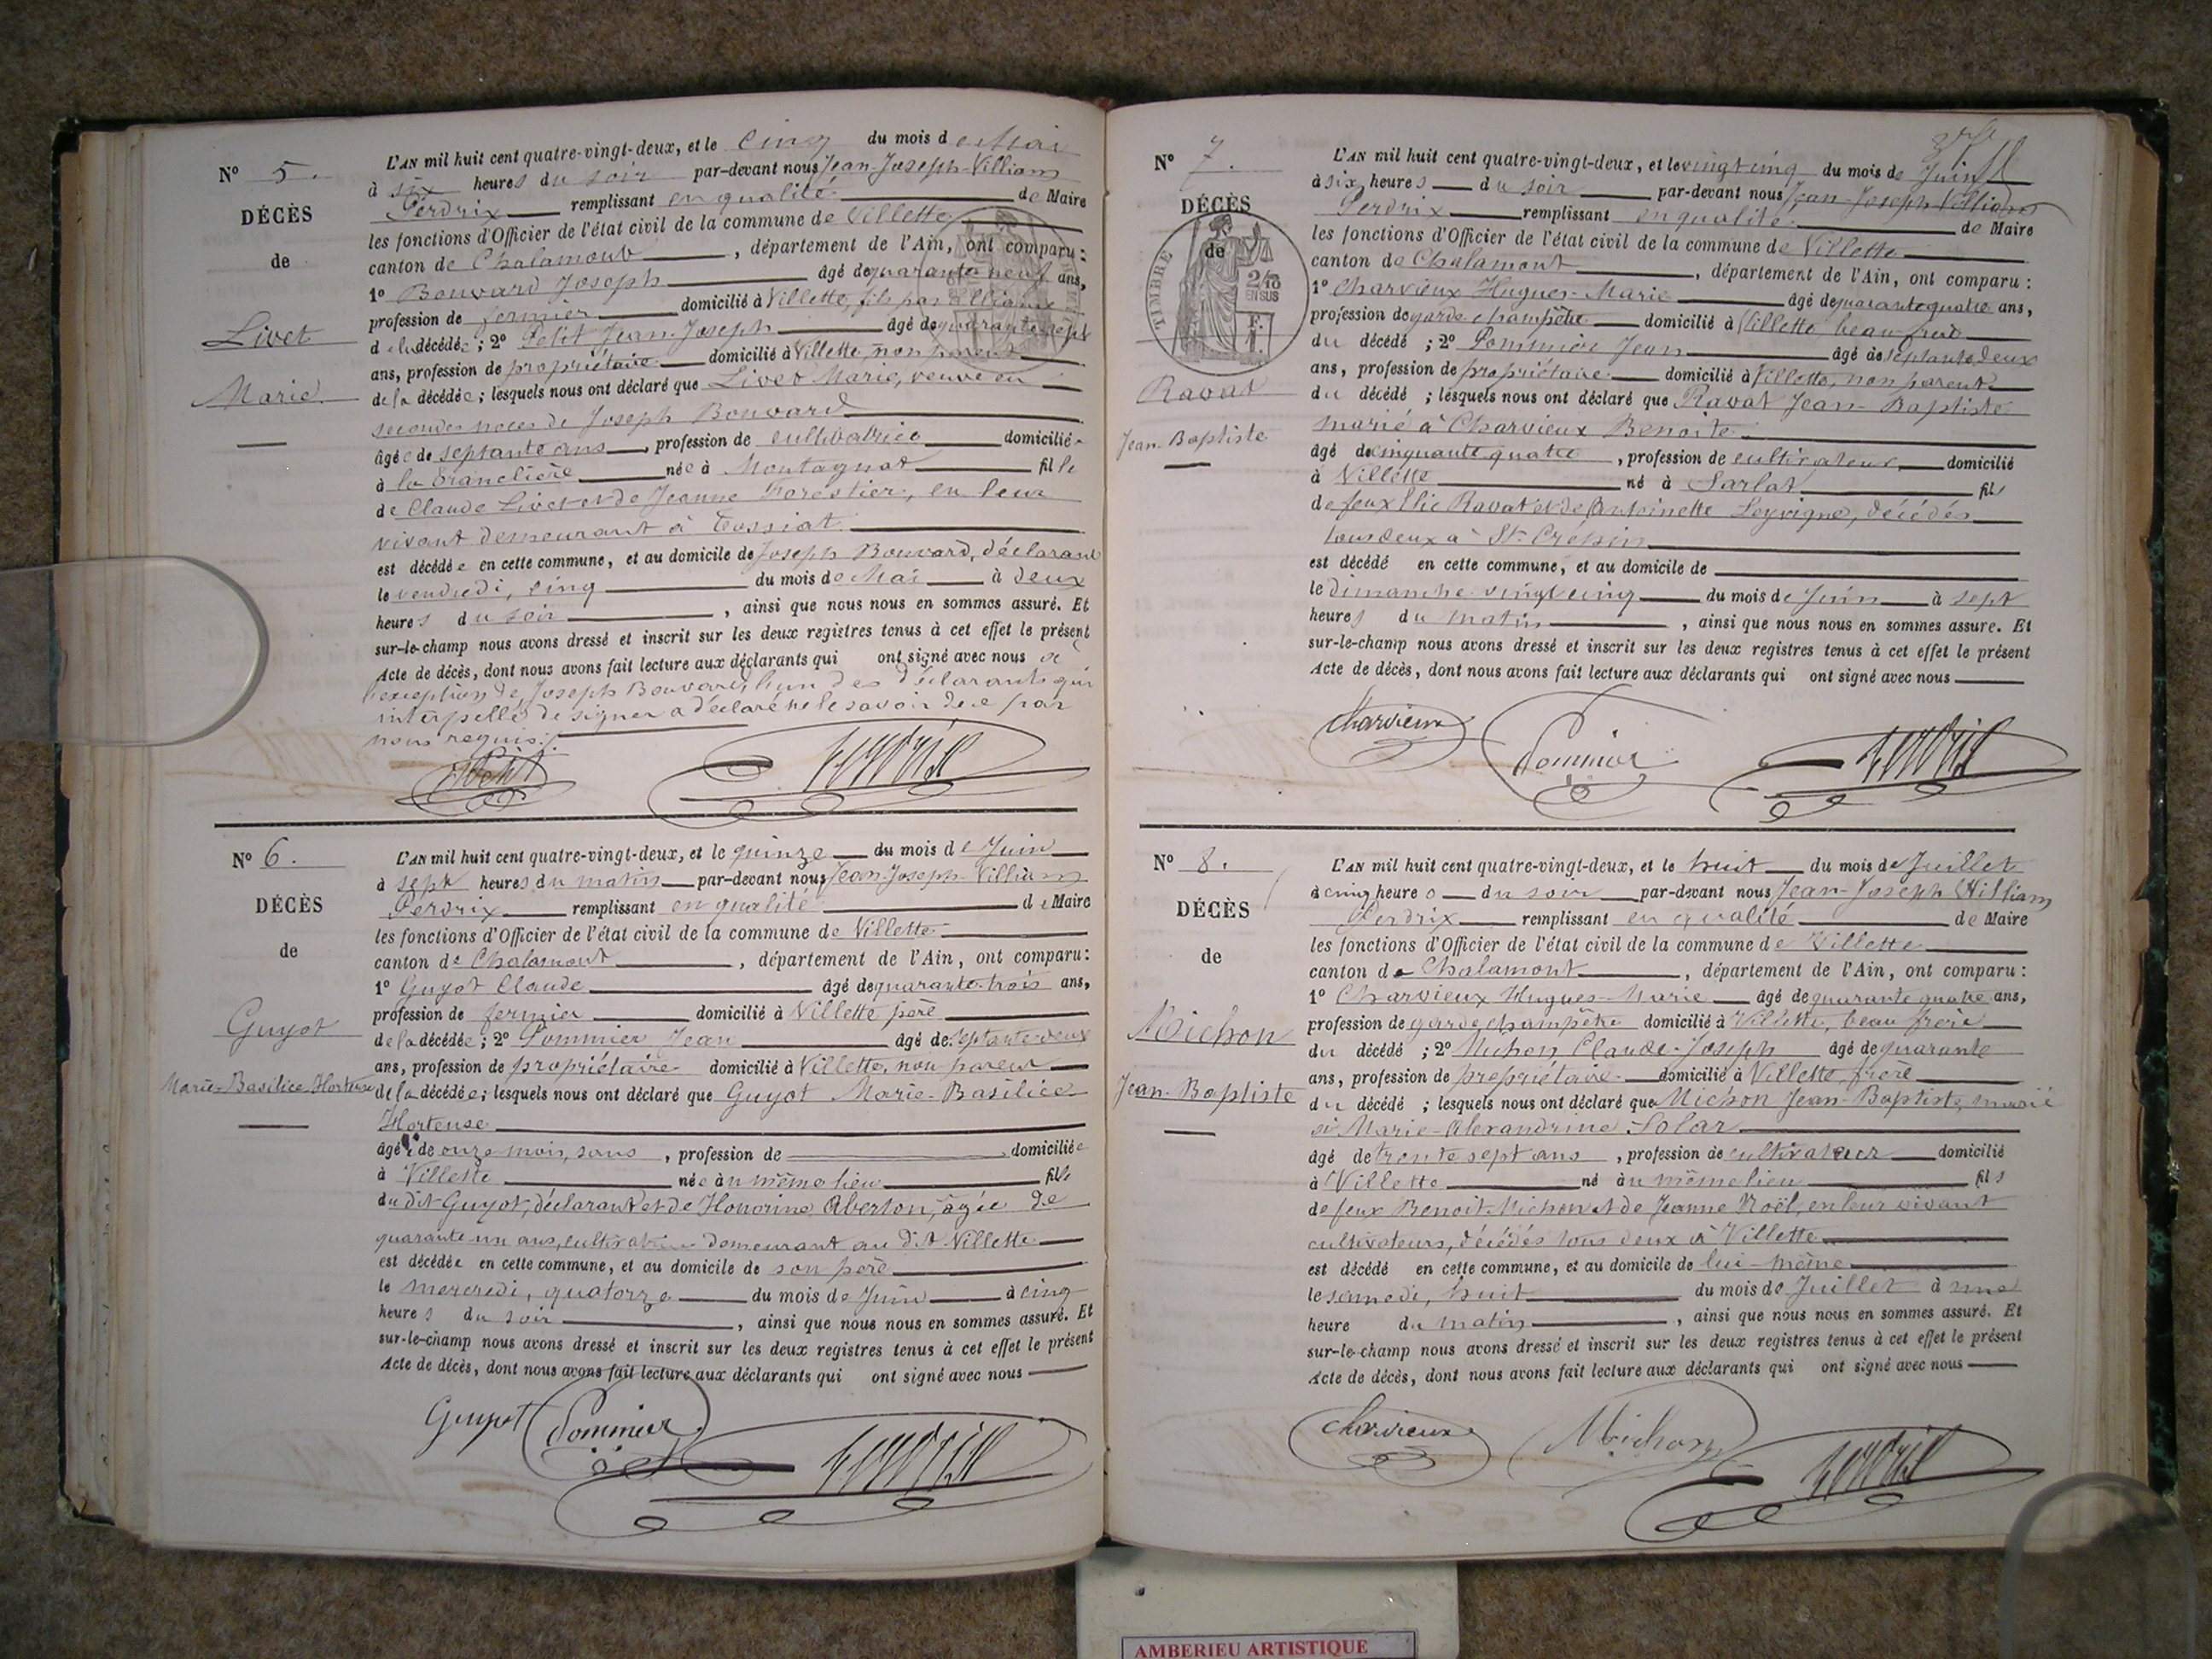 N° 5.
DÉCÈS
de
Livet
Marie.
L'AN mil huit cent quatre-vingt-deux, et le cinq du mois de Mai
à six heures du soir par-devant nous Jean-Joseph-Villiam
Perdrix remplissant en qualité de Maire
les fonctions d'Officier de l'état civil de la commune de Villette
canton de Chalamont, département de l'Ain, ont comparu:
1° Bouvard Joseph âgé de quarante neuf ans,
profession de fermier domicilié à Villette, fils par alliance
de la décédée; 2° Petit Jean-Joseph âgé de quarante sept
ans, profession de propriétaire domicilié à Villette, non parent
de la décédée; lesquels nous ont déclaré que Livet Marie, veuve en
secondes noces de Joseph Bouvard
âgée de septante ans, profession de cultivatrice domiciliée
à la Franclière née à Montagnat fille
de Claude Livet et de Jeanne Forestier, en leur
vivant demeurant à Tossiat.
est décédée en cette commune, et au domicile de Joseph Bouvard, déclarant
le vendredi, cinq du mois de Mai à deux
heures du soir, ainsi que nous nous en sommes assuré. Et
sur-le-champ nous avons dressé et inscrit sur les deux registres tenus à cet effet le présent
Acte de décès, dont nous avons fait lecture aux déclarants qui ont signé avec nous à
l'exception de Joseph Bouvard, l'un des déclarants qui
interpellé de signer a déclaré ne le savoir de ce par
nous requis.
Petit Perdrix
N° 6.
DÉCÈS
de
Guyot
Marie-Basilice Hortense
L'AN mil huit cent quatre-vingt-deux, et le quinze du mois de Juin
à sept heures du matin par-devant nous Jean-Joseph-Villiam
Perdrix remplissant en qualité de Maire
les fonctions d'Officier de l'état civil de la commune de Villette
canton de Chalamont, département de l'Ain, ont comparu:
1° Guyot Claude âgé de quarante-trois ans,
profession de fermier domicilié à Villette père
de la décédée; 2° Pommier Jean âgé de septante deux
ans, profession de propriétaire domicilié à Villette, non parent
de la décédée; lesquels nous ont déclaré que Guyot Marie-Basilice
Hortense
âgée de onze mois, sans, profession de domiciliée
à Villette née au même lieu fille
du dit Guyot, déclarant et de Honorine Aberton, âgée de
quarante un ans, cultivatrice demeurant au dit Villette
est décédée en cette commune, et au domicile de son père
le mercredi, quatorze du mois de Juin à cinq
heures du soir, ainsi que nous nous en sommes assuré. Et
sur-le-champ nous avons dressé et inscrit sur les deux registres tenus à cet effet le présent
Acte de décès, dont nous avons fait lecture aux déclarants qui ont signé avec nous
Guyot Pommier Perdrix
N° 7.
DÉCÈS
de
TIMBRE
2/10
EN SUS
F.
1.
Ravat
Jean-Baptiste
L'AN mil huit cent quatre-vingt-deux, et le vingt cinq du mois de Juin
à six heures du soir par-devant nous Jean-Joseph Villiam
Perdrix remplissant en qualité de Maire
les fonctions d'Officier de l'état civil de la commune de Villette
canton de Chalamont, département de l'Ain, ont comparu:
1° Charvieux Hugues-Marie âgé de quarante quatre ans,
profession de garde champêtre domicilié à Villette, beau frère
du décédé; 2° Pommier Jean âgé de septante deux
ans, profession de propriétaire domicilié à Villette, non parent
du décédé; lesquels nous ont déclaré que Ravat Jean-Baptiste
marié à Charvieux Benoite
âgé de cinquante quatre, profession de cultivateur domicilié
à Villette né à Sarlat fils
de feux Elie Ravat et de Antoinette Leyvigne, décédés
tous deux à St-Crépin
est décédé en cette commune, et au domicile de
le dimanche vingt cinq du mois de Juin à sept
heures du matin, ainsi que nous nous en sommes assuré. Et
sur-le-champ nous avons dressé et inscrit sur les deux registres tenus à cet effet le présent
Acte de décès, dont nous avons fait lecture aux déclarants qui ont signé avec nous
Charvieux Pommier Perdrix
N° 8.
DÉCÈS
de
Michon
Jean-Baptiste
L'AN mil huit cent quatre-vingt-deux, et le huit du mois de Juillet
à cinq heures du soir par-devant nous Jean-Joseph Villiam
Perdrix remplissant en qualité de Maire
les fonctions d'Officier de l'état civil de la commune de Villette
canton de Chalamont, département de l'Ain, ont comparu:
1° Charvieux Hugues-Marie âgé de quarante quatre ans,
profession de garde champêtre domicilié à Villette, beau frère
du décédé; 2° Michon Claude-Joseph âgé de quarante
ans, profession de propriétaire domicilié à Villette, frère
du décédé; lesquels nous ont déclaré que Michon Jean-Baptiste, marié
à Marie-Alexandrine Solar
âgé de trente sept ans, profession de cultivateur domicilié
à Villette né au même lieu fils
de feux Benoit Michon et de Jeanne Noël, en leur vivant
cultivateurs, décédés tous deux à Villette
est décédé en cette commune, et au domicile de lui-même
le samedi, huit du mois de Juillet à une
heure du matin, ainsi que nous nous en sommes assuré. Et
sur-le-champ nous avons dressé et inscrit sur les deux registres tenus à cet effet le présent
Acte de décès, dont nous avons fait lecture aux déclarants qui ont signé avec nous
Charvieux Michon Perdrix
AMBERIEU ARTISTIQUE